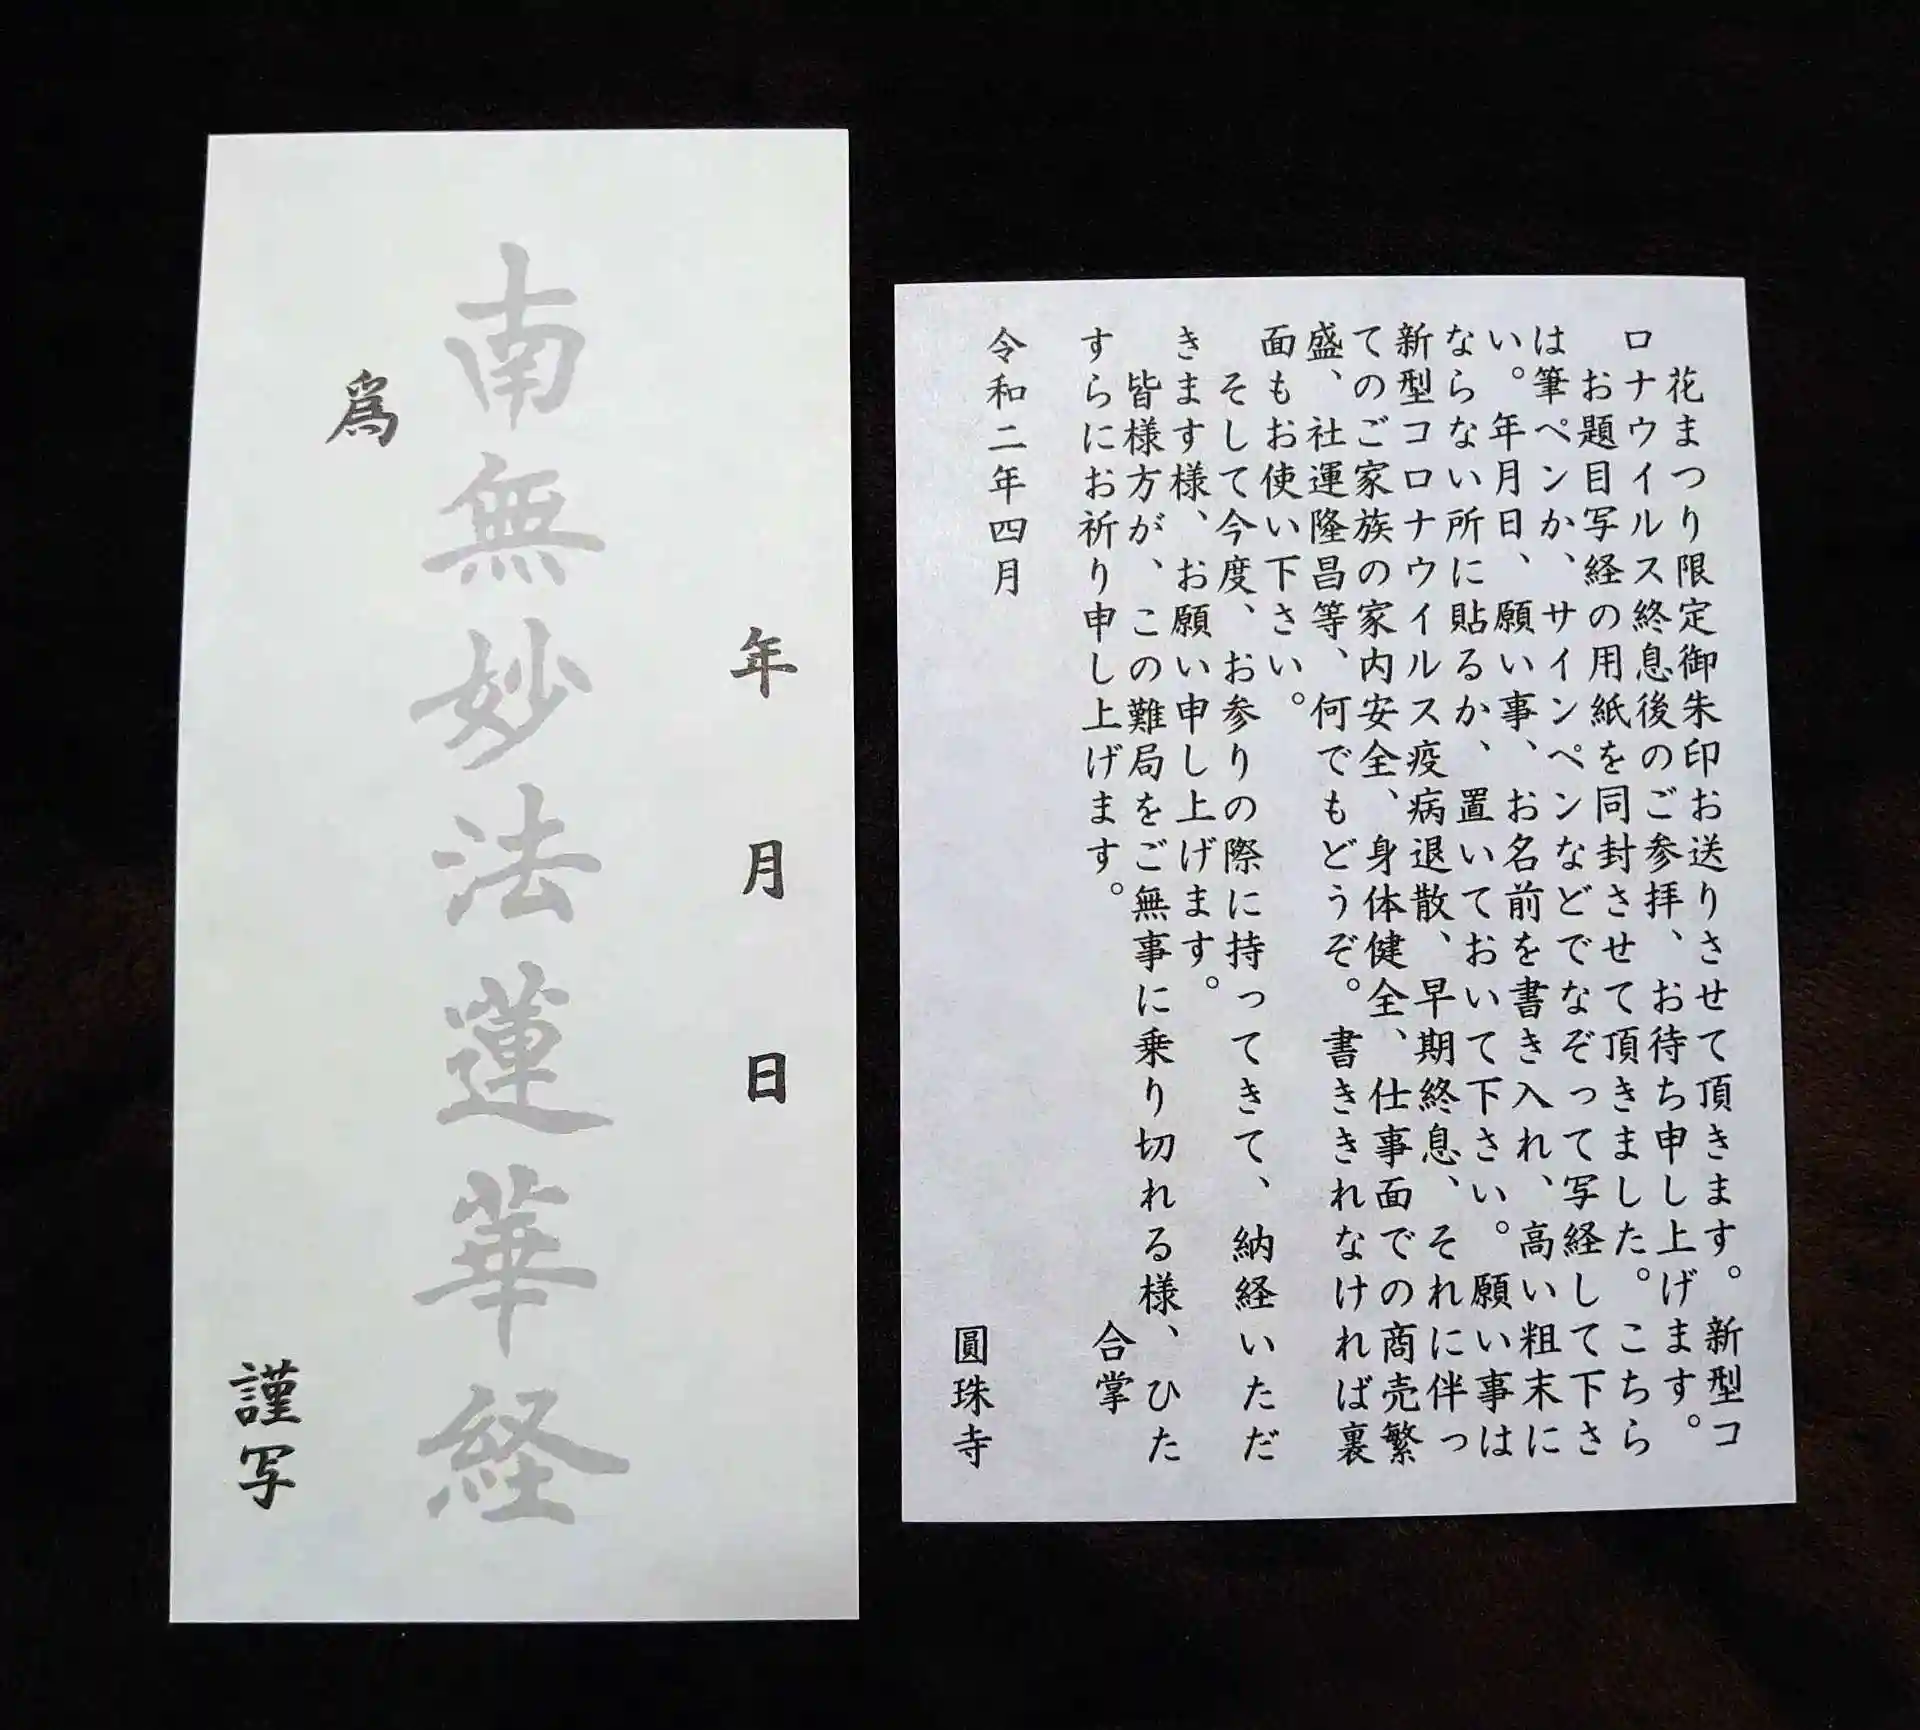 年 月 日
南無妙法蓮華経
為
謹写
花まつり限定御朱印お送りさせて頂きます。新型コ
ロナウイルス終息後のご参拝、お待ち申し上げます。
お題目写経の用紙を同封させて頂きました。こちら
は筆ペンか、サインペンなどでなぞって写経して下さ
い。年月日、願い事、お名前を書き入れ、高い粗末に
ならない所に貼るか、置いておいて下さい。願い事は
新型コロナウイルス疫病退散、早期終息、それに伴っ
てのご家族の家内安全、身体健全、仕事面での商売繁
盛、社運隆昌等、何でもどうぞ。書ききれなければ裏
面もお使い下さい。
そして今度、お参りの際に持ってきて、納経いただ
きます様、お願い申し上げます。
皆様方が、この難局をご無事に乗り切れる様、ひた
すらにお祈り申し上げます。
合掌
令和二年四月
圓珠寺